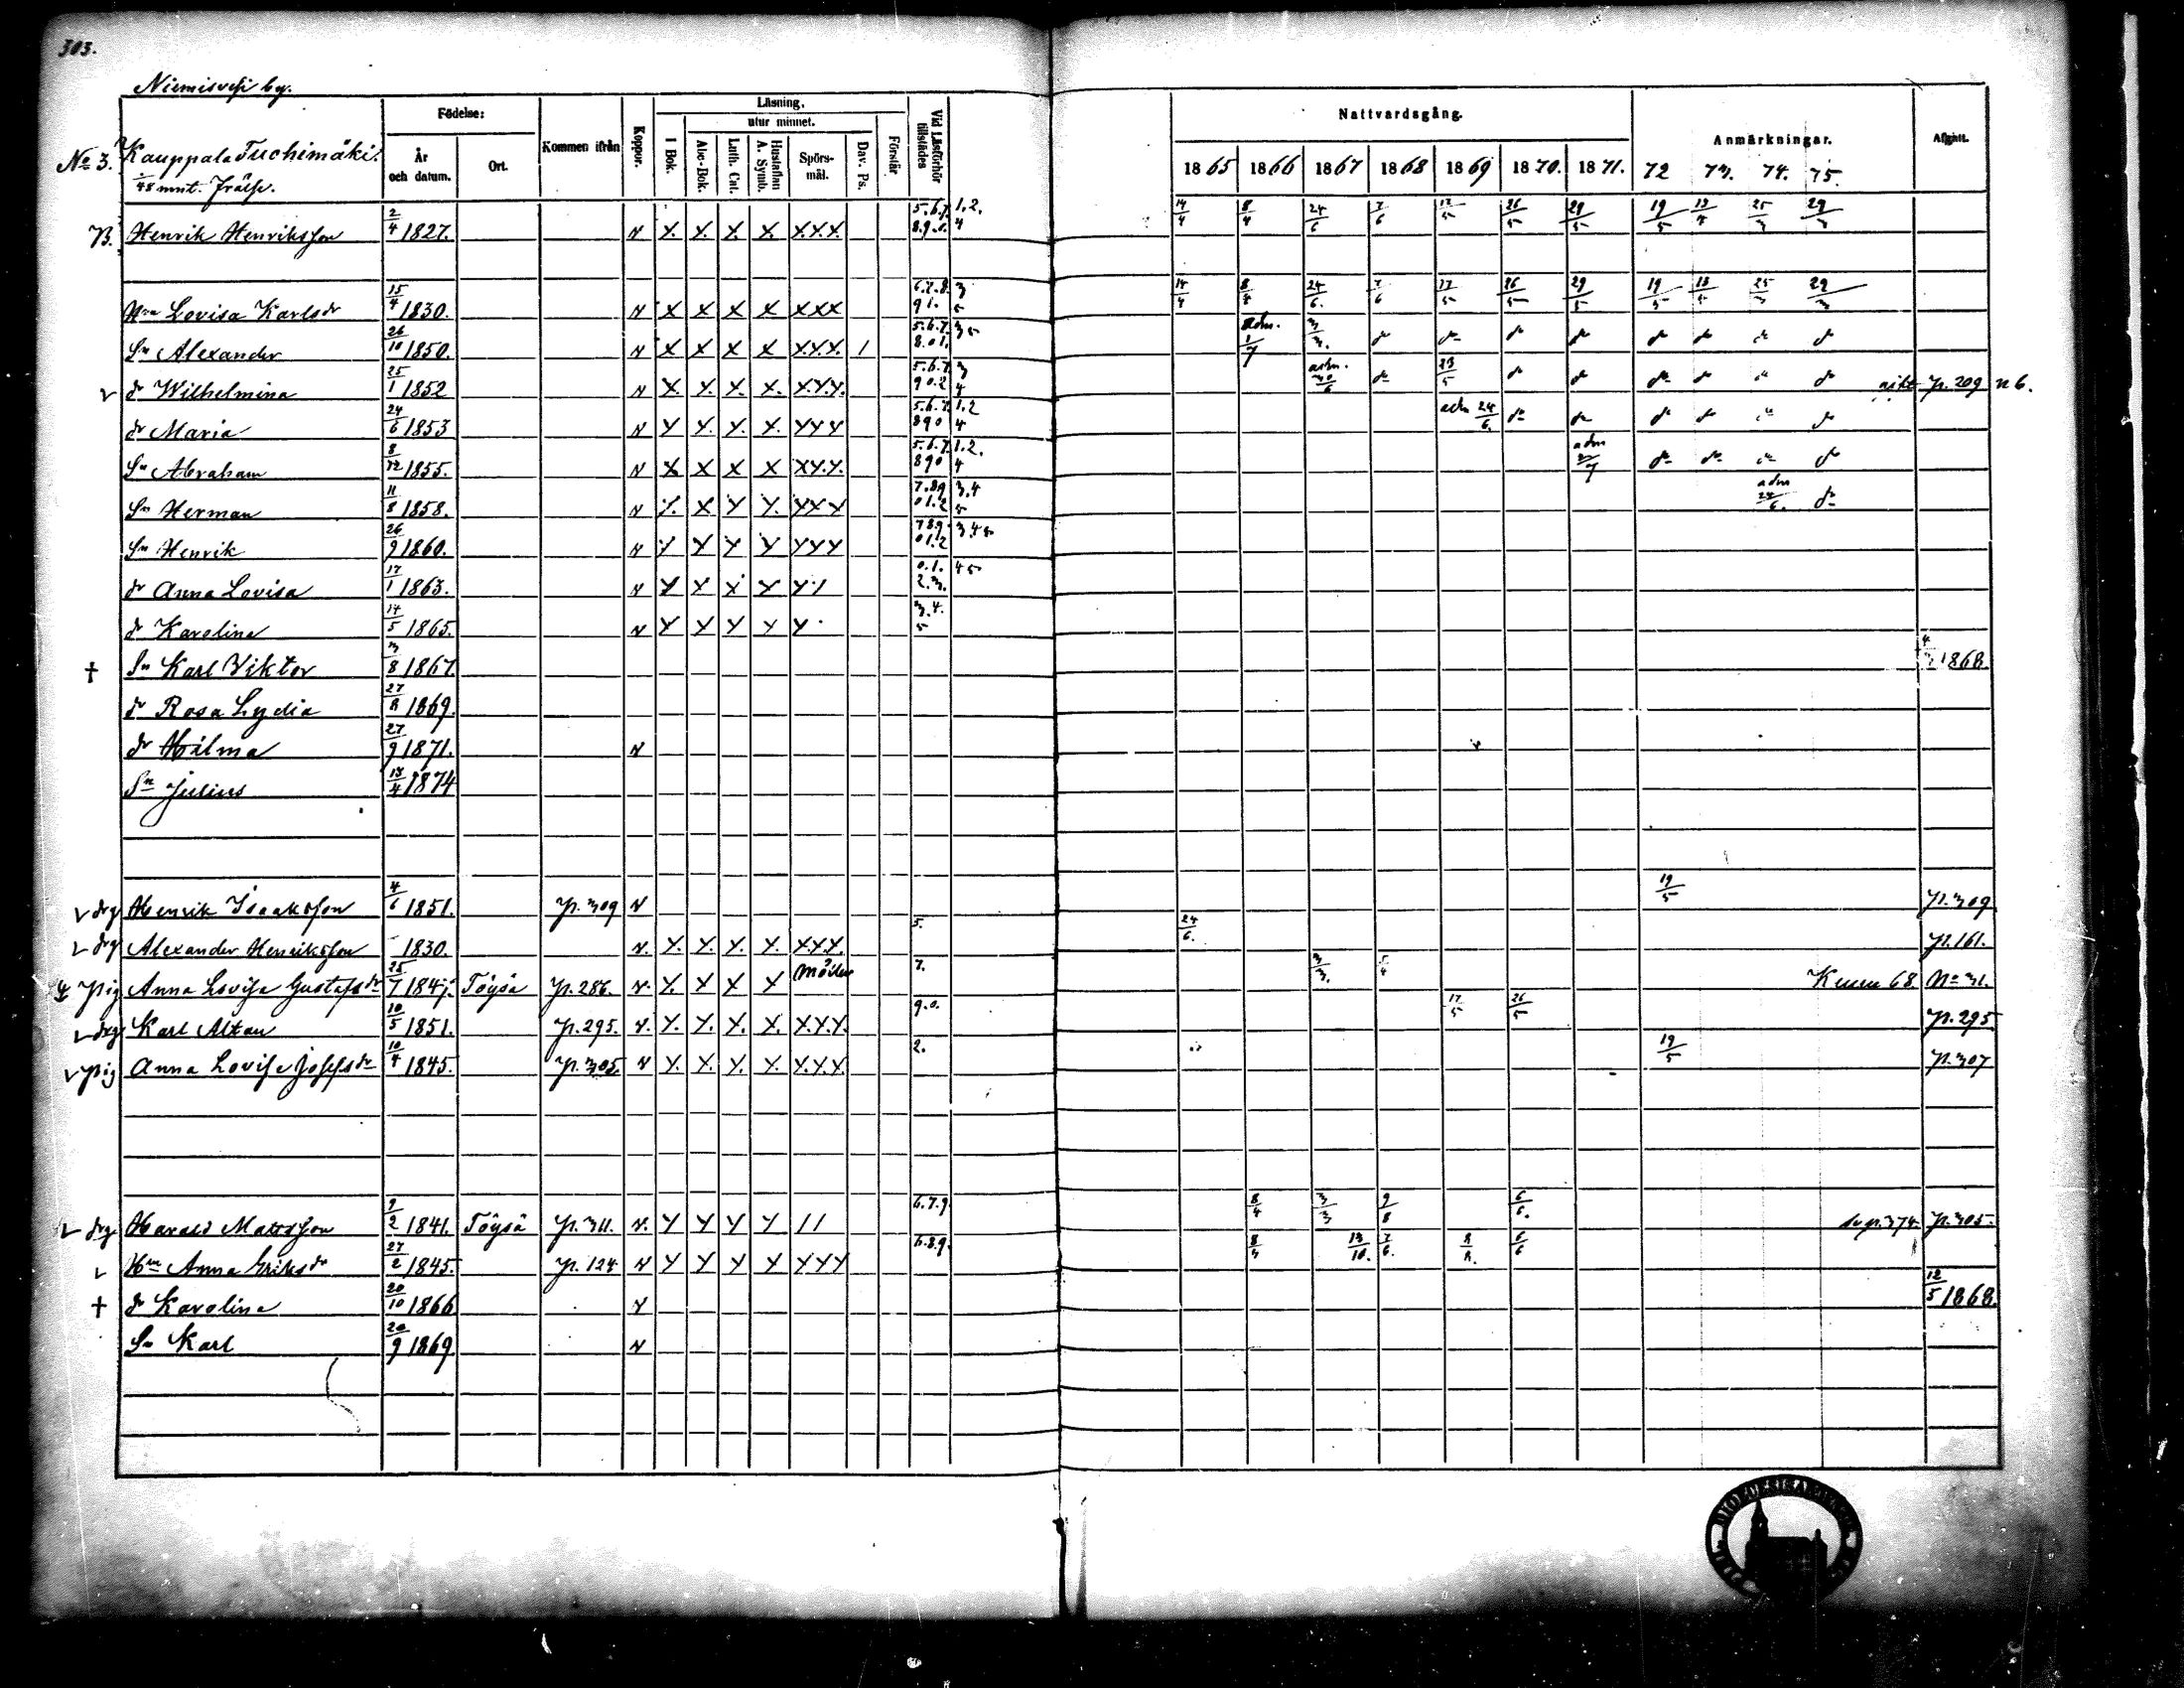 303.
Niemisvesi by.
Födelse: Läsning, utur minnet. Nattvardsgång. Anmärkningar. Afgått.
No 3. Kauppala Tuchimäki. År och datum. Ort. Kommen ifrån Koppor. I Bok. Abc-Bok. Luth. Cat. Hustaflan A. Symb. Spörsmål. Dav. Ps. Förstår Vid Läsförhör tillstädes 1865 1866 1867 1868 1869 1870. 1871. 72 73. 74. 75.
1/48 mnt. Frälse.
B. Henrik Henriksson 2/4 1827. v X. X. X. X. X.X.X. 5.6.7. 8.9.0. 1.2. 4 14/4 8/4 24/6 7/6 17/5 26/5 29/5 19/5 13/4 25/3 29/3
Hn Lovisa Karlsdr 15/4 1830. v X X X X XXX 6.7.8. 9 1. 3 5 14/4 8/4 24/6. 7/6 17/5 26/5 29/5 19/5 13/4 25/3 29/3
Sn Alexander 26/10 1850. v X X X X X.X.X. 1 5.6.7. 8.0 1. 3 5 adm. 1/7 3/3. do do do do do do do do
v dr Wilhelmina 25/1 1852 v X. X. X. X. X.X.X. 5.6.7. 9 0.2 3 4 adm. 30/6 do 23/5 do do do do do do p. 209 n 6.
dr Maria 24/6 1853 v X X. X. X. XXX 5.6.7. 8 9 0 1.2 4 adm 24/6. do do do do do do
Sn Abraham 8/12 1855. v X X X X XX.X. 5.6.7. 8 9 0 1.2. 4 adm do do do do
Sn Herman 11/8 1858. v X. X X X. XXX 7.8 9 0 1.2 3.4 5 adm 24/6. do
Sn Henrik 26/9 1860. v X X X X XXX 7 8 9. 0 1.2 3.4 5
dr Anna Lovisa 17/1 1863. v X X X X X/ 0.1. 2.3. 4 5
dr Karolina 14/5 1865. v X X X X X 3.4. 5
† Sn Karl Viktor 3/8 1867. 4/3 1868.
dr Rosa Lydia 27/8 1869.
dr Hilma 27/9 1871. v
Sn Julius 13/4 1874
v drg Henrik Isaaksson 4/6 1851. p. 309 v 19/5 p. 309
v drg Alexander Henriksson 1830. v. X. X. X. X. X.X.X. 5. 24/6. p. 161.
pig Anna Lovisa Gustafsdr 25/7 1847. Töysä p. 286. v. X. X X X 7. 3/3. 5/4 68 No 31.
v drg Karl Altan 10/5 1851. p. 295. v. X. X. X. X. X.X.X. 9.0. 17/5 26/5 p. 295
v pig Anna Lovisa Josefsdr 10/4 1845. p. 305. v X. X. X. X. X.X.X. 2. 19/5 p. 307
v drg Harald Mattsson 9/2 1841. Töysä p. 311. v. X X X X // 6.7.9. 8/4 3/3 9/8 6/6. p. 374 p. 305.
v Hn Anna Eriksdr 27/2 1845. p. 124 v X X X X XXX 6.8.9. 8/3 13/10. 7/6. 8/8. 6/6
† dr Karolina 20/10 1866 v 12/5 1868.
Sn Karl 20/9 1869 v